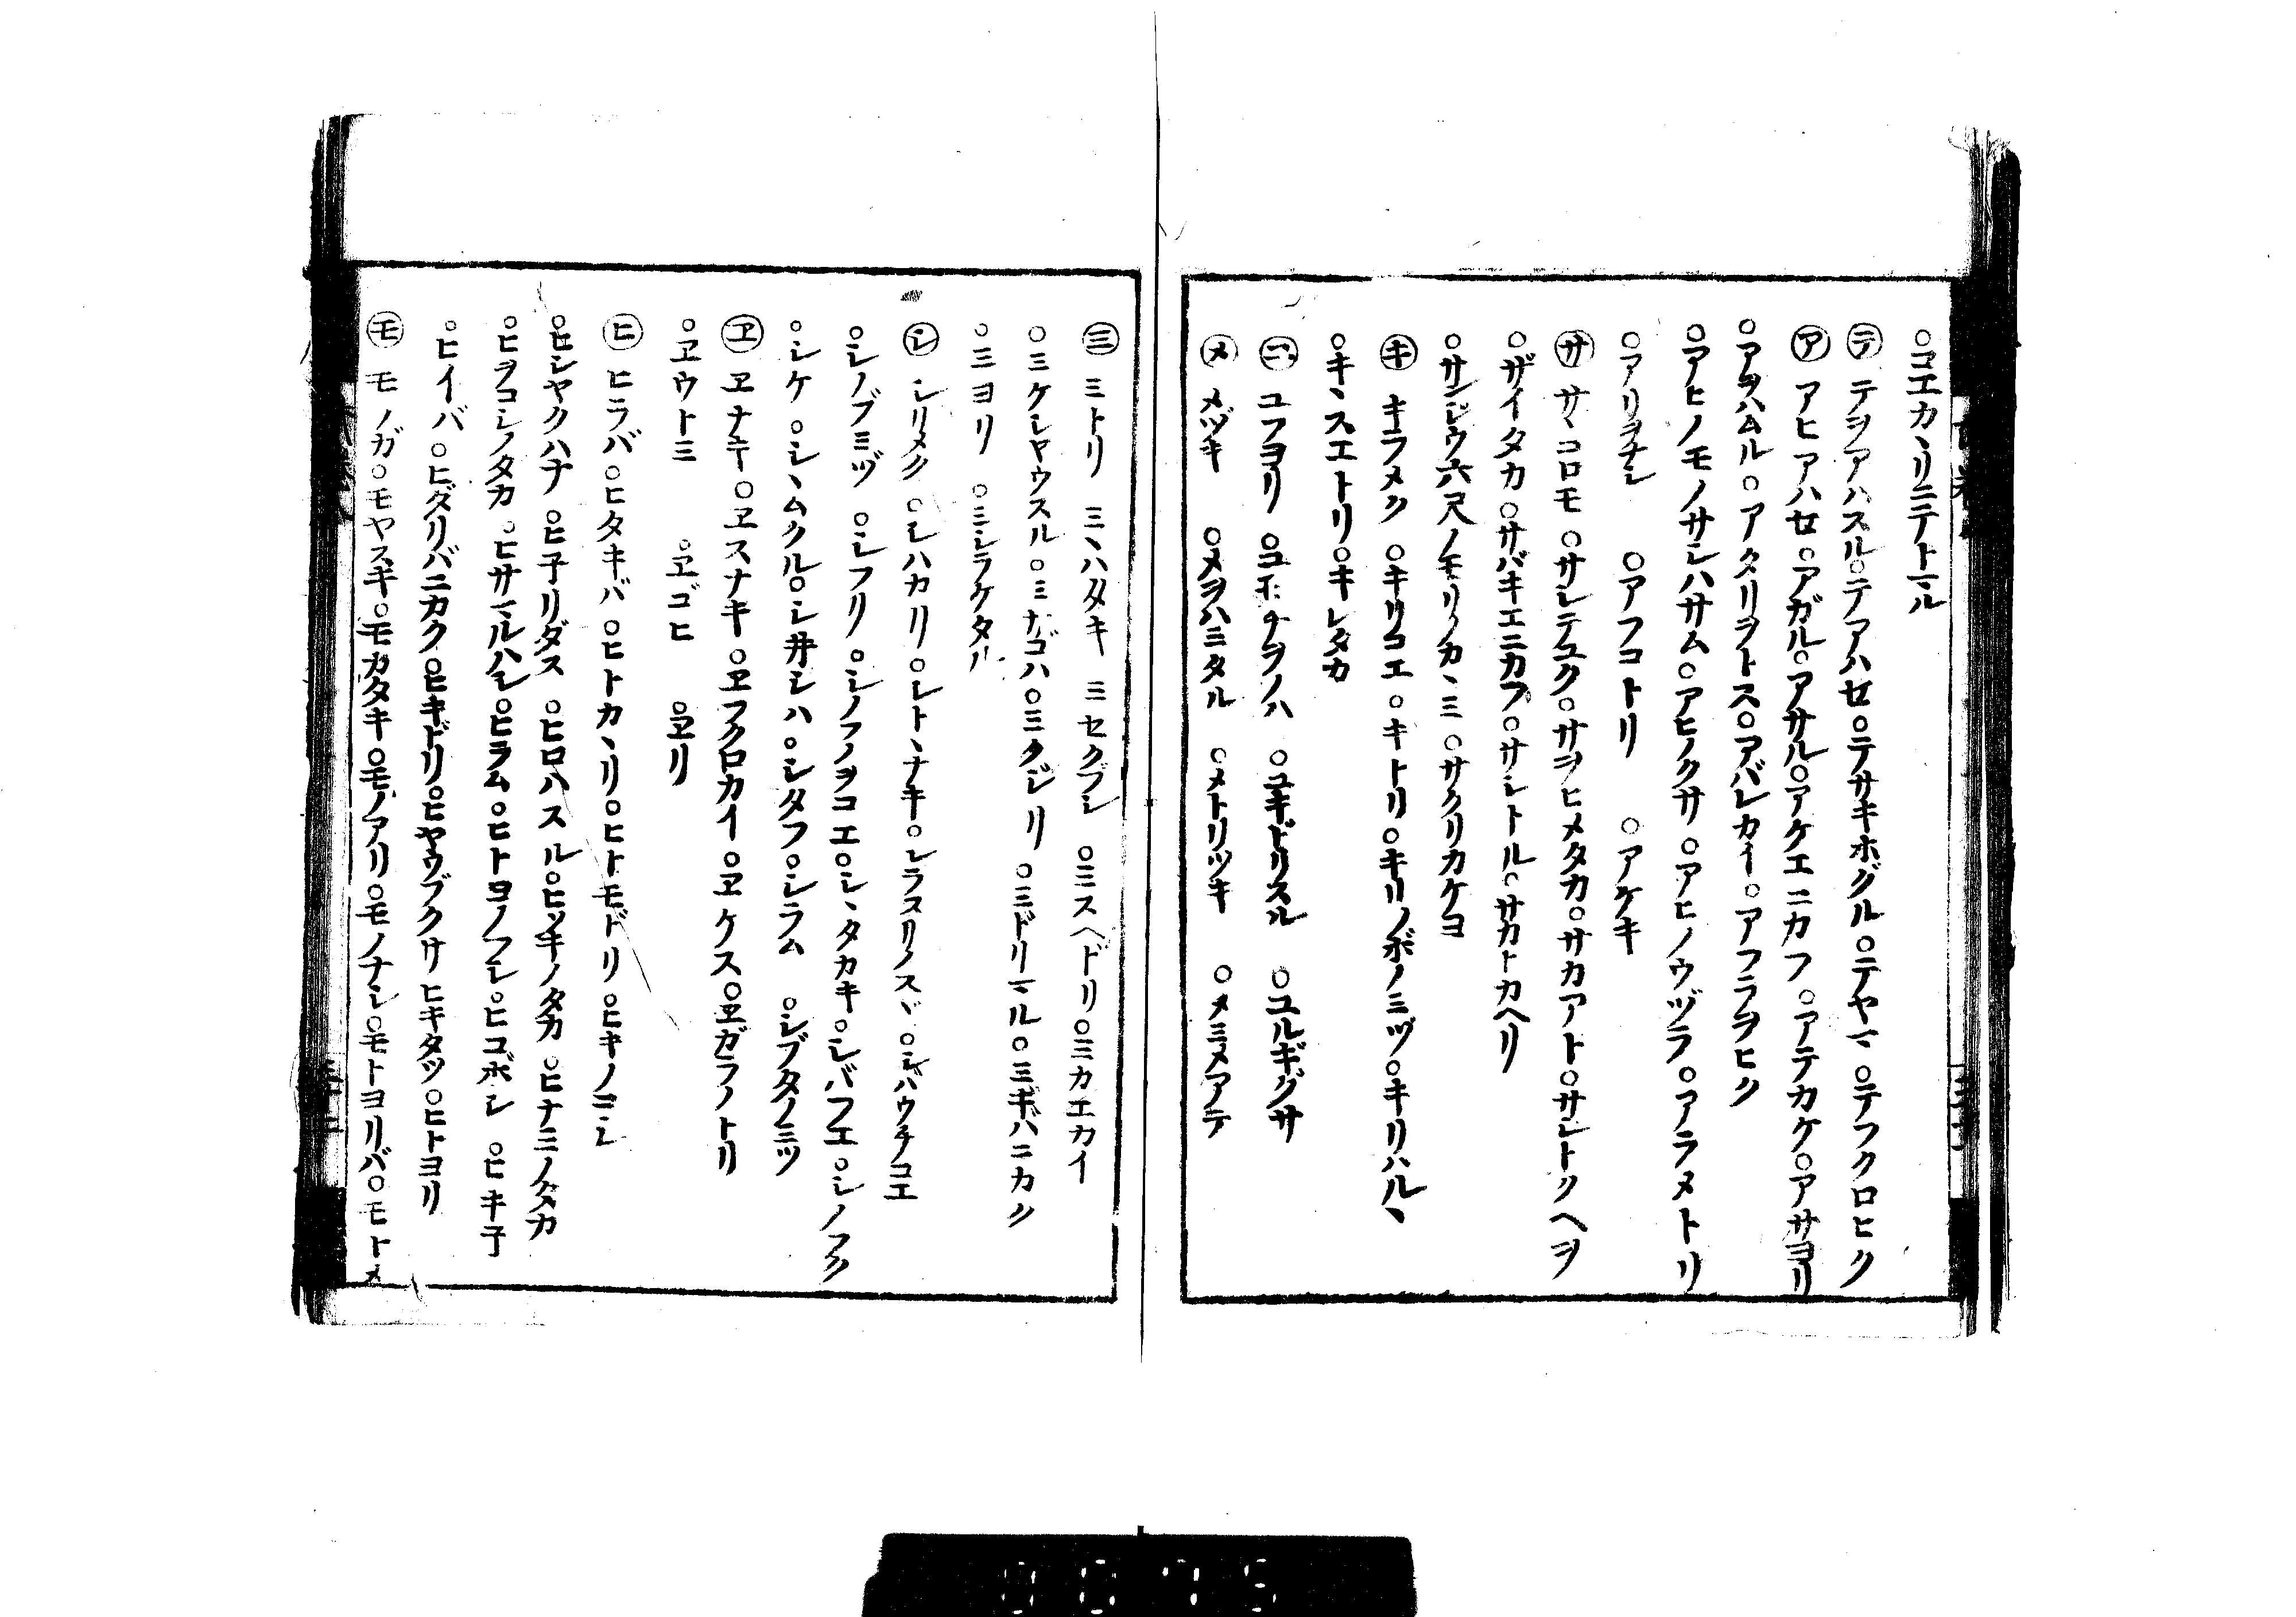 ○コエカヽリニテトマル
㋢ テヲアハスル○テアハセ○テサキホグル○テヤマ○テフクロヒク
㋐ アヒアハセ○アガル○アサル○アケエニカフ○アテカケ○アサヨリ
○アヲハムル○アタリヲトス○アバレカイ○アフラヲヒク
○アヒノモノサシハサム○アヒノクサ○アヒノウヅラ○アラメトリ
○アリヲチシ ○アフコトリ ○アケキ
㋚ サヽコロモ○サシテユク○サヲヒメタカ○サカアト○サシトクヘヲ
○ザイタカ○サバキエニカフ○サシトル○サカトカヘリ
○サンジウ六尺ノモリカヽミ○サクリカケヨ
㋖ キラメク○キリコエ○キトリ○キリノボノミヅ○キリハルヽ
○キヽスエトリ○キレタカ
㋴ ユフヨリ ○ユホチヲノハ ○ユキドリスル ○ユルギグサ
㋱ メヅキ ○メヲハミタル ○メトリツキ ○メミメアテ
㋯ ミトリ ミヽハタキ ミセクブシ ○ミスヘドリ○ミカエカイ
○ミケシヤウスル○ミナゴハ○ミダジリ○ミドリマル○ミギハニカク
○ミヨリ ○ミシラケタル
㋛ シリメク○シハカリ○シトヽナキ○シラスリノスヾ○シバウチコエ
○シノブミヅ ○シフリ○シノフノヲコエ○シヽタカキ○シバフエ○シノフク
○シケ○シヽムクル○シ井シハ○シタフ○シラム ○シブタノミツ
㋽ ヱナキ○ヱスナキ○ヱフクロカイ○ヱケス○ヱガラノトリ
○ヱウトミ ○ヱゴヒ ○ヱリ
㋪ ヒラバ○ヒタキバ○ヒトカヽリ○ヒトモドリ○ヒキノヨシ
○ヒシヤクハナ○ヒ子リダス○ヒロハスル○ヒツキノタカ○ヒナミノタカ
○ヒヲコシノタカ○ヒサマルハシ○ヒラム○ヒトヨノフシ○ヒコボシ○ヒキ子
○ヒイバ○ヒダリバニカク○ヒキドリ○ヒヤウブクサ ヒキタツ○ヒトヨリ
㋲ モノガ○モヤスキ○モカタキ○モノアリ○モノナシ○モトヨリバ○モトメ